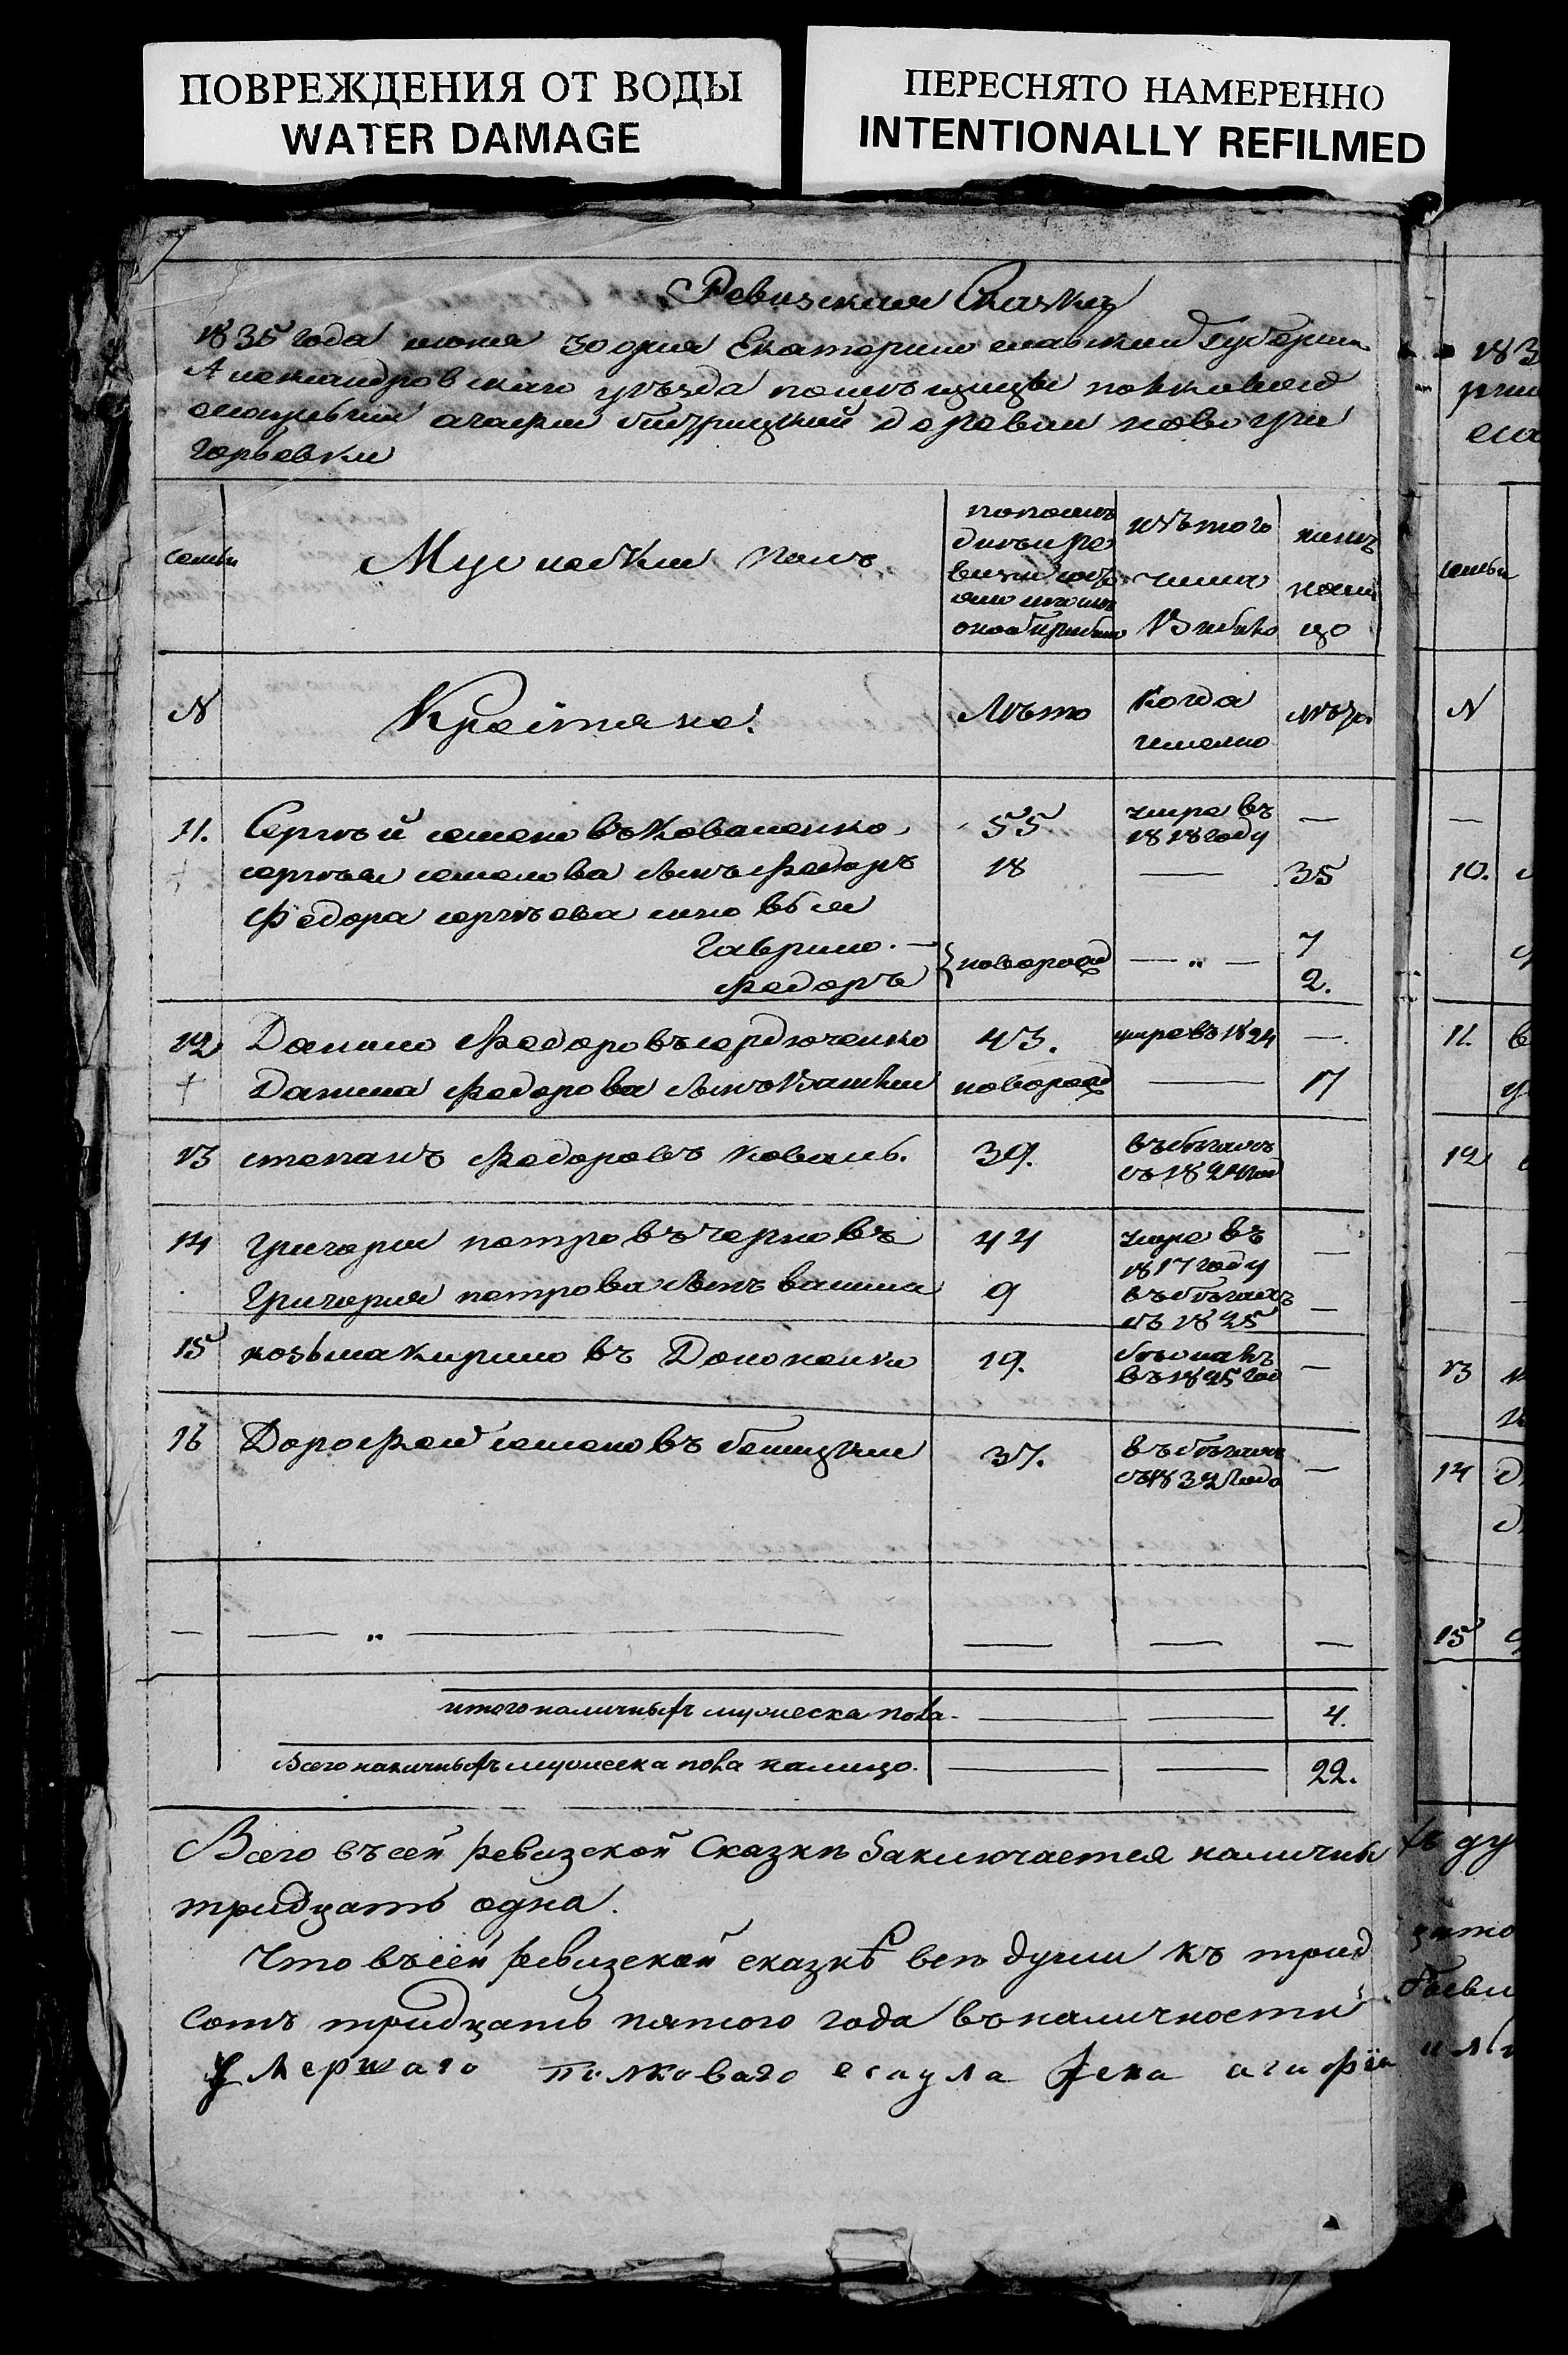 ПОВРЕЖДЕНИЯ ОТ ВОДЫ
WATER DAMAGE
ПЕРЕСНЯТО НАМЕРЕННО
INTENTIONALLY REFILMED
Ревизская Сказка
1835 года июня 30 дня Екатеринославской Губернии
Александровскаго уезда помещицы полковой
агафии деревни ново гри
горьевки
семьи
Мужеской полъ
по послѣ
дней ре
визіи состо
яло и после
оной прибыло
изъ того
числа
выбыло
ныне
нали
цо
N
Крестяне.
Лѣта
Когда
имянно
лѣта
11. Сергѣй семеновъ Коваленко 55 умре въ 1818 году —
сергѣя семенова сынъ федоръ 18 — 35
федора сергѣева сыновья
Гаврило — новорож — „ — 7
федоръ 2.
12 Данило федоровъ сердюченко 43. умре въ 1824 —
Данила федорова сынъ новорож — 17
13 степанъ федоровъ коваль. 39. въ бѣгахъ съ 1824 год
14 Григорий петровъ черновъ 44 умре въ 1817 году —
Григория петрова сынъ 9 въ бѣгахъ съ 1825 —
15 козьма кириловъ 19. въ 1825 год —
16 Дорофей семеновъ 37. въ бѣгахъ съ 1832 года —
— — „ — — — —
итого наличныхъ мужеска пола — — 4.
Всего наличныхъ мужеска пола налицо. — — 22.
Всего въ сей ревизской Сказки Заключается наличны
тридцать одна.
Что въ сей ревизской сказкѣ все души къ трид
сотъ тридцать пятого года въ наличности
умершаго полковаго есаула жена агафия
183
N
10.
11.
12
13
14
15
хъ ду